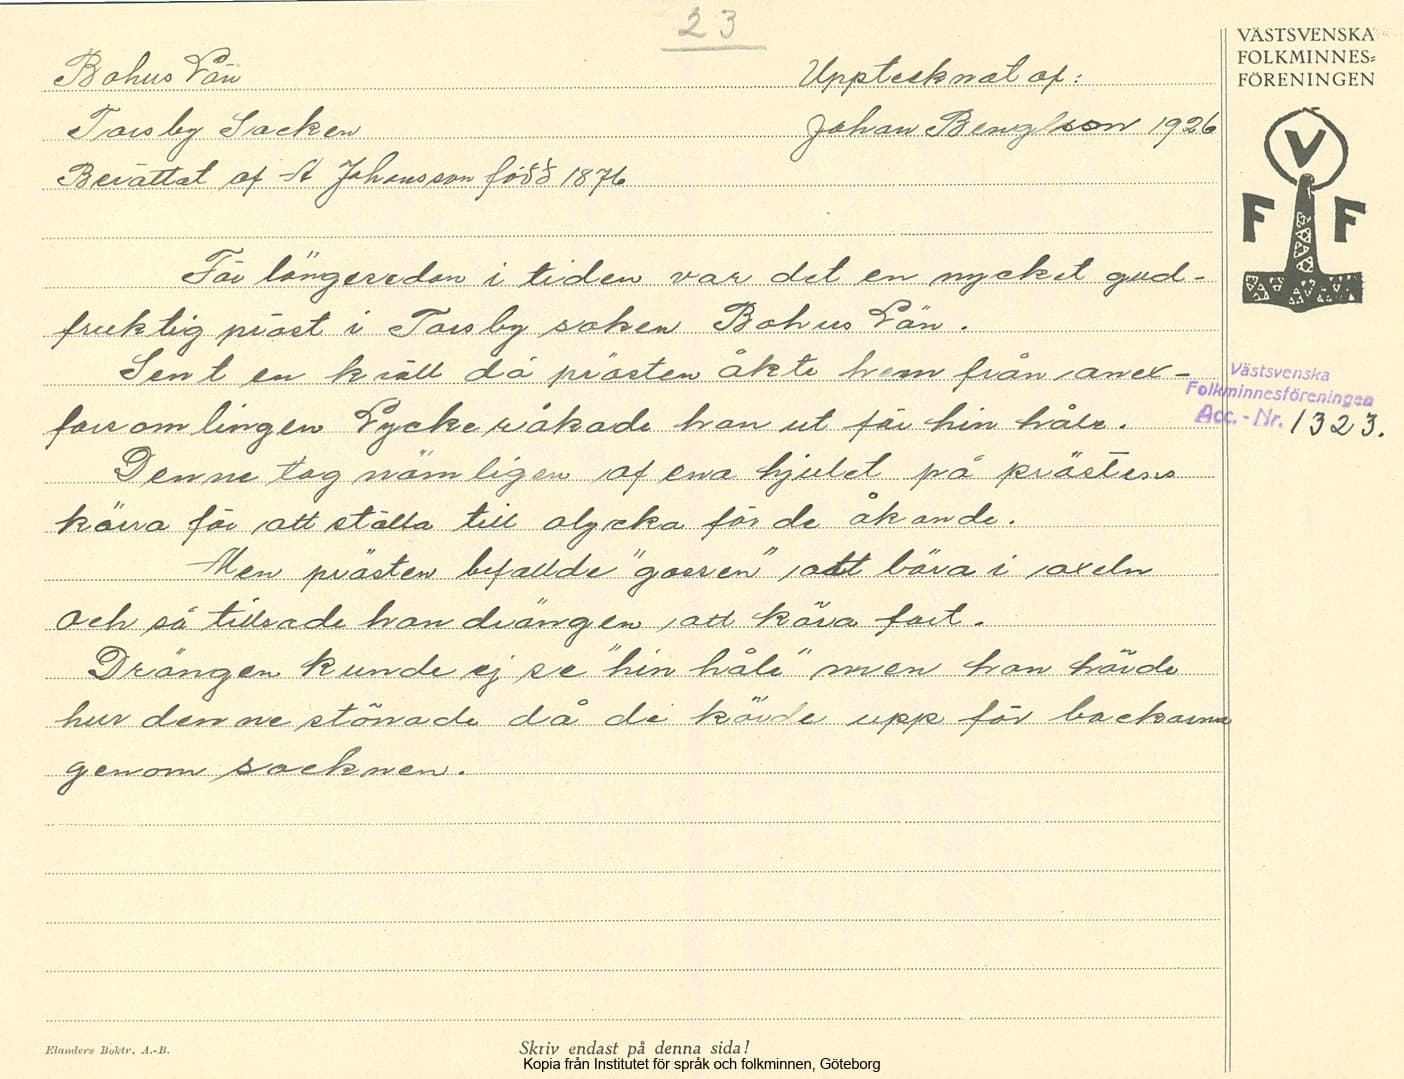 23
VÄSTSVENSKA
FOLKMINNES=
FÖRENINGEN
V
F F
Bohus Län
Upptecknat af:
Torsby Socken
Johan Bengtson 1926
Berättat af A Johansson född 1876
För längesedan i tiden var det en mycket gud-
fruktig präst i Torsby soken Bohus Län.
Sent en kväll då prästen åkte hem från anex-
försomlingen Lycke råkade han ut för hin håle.
Västsvenska
Folkminnesföreningen
Acc.-Nr. 1323.
Denne tog nämligen af ena hjulet på prästens
kärra för att ställa till olycka för de åkande.
Men prästen befallde "gossen" att bära i axeln
och så tillsade han drängen att köra fort.
Drängen kunde ej se "hin håle" men han hörde
hur denne stönade då de körde upp för backarna
genom socknen.
Elanders Boktr. A.-B.
Skriv endast på denna sida!
Kopia från Institutet för språk och folkminnen, Göteborg